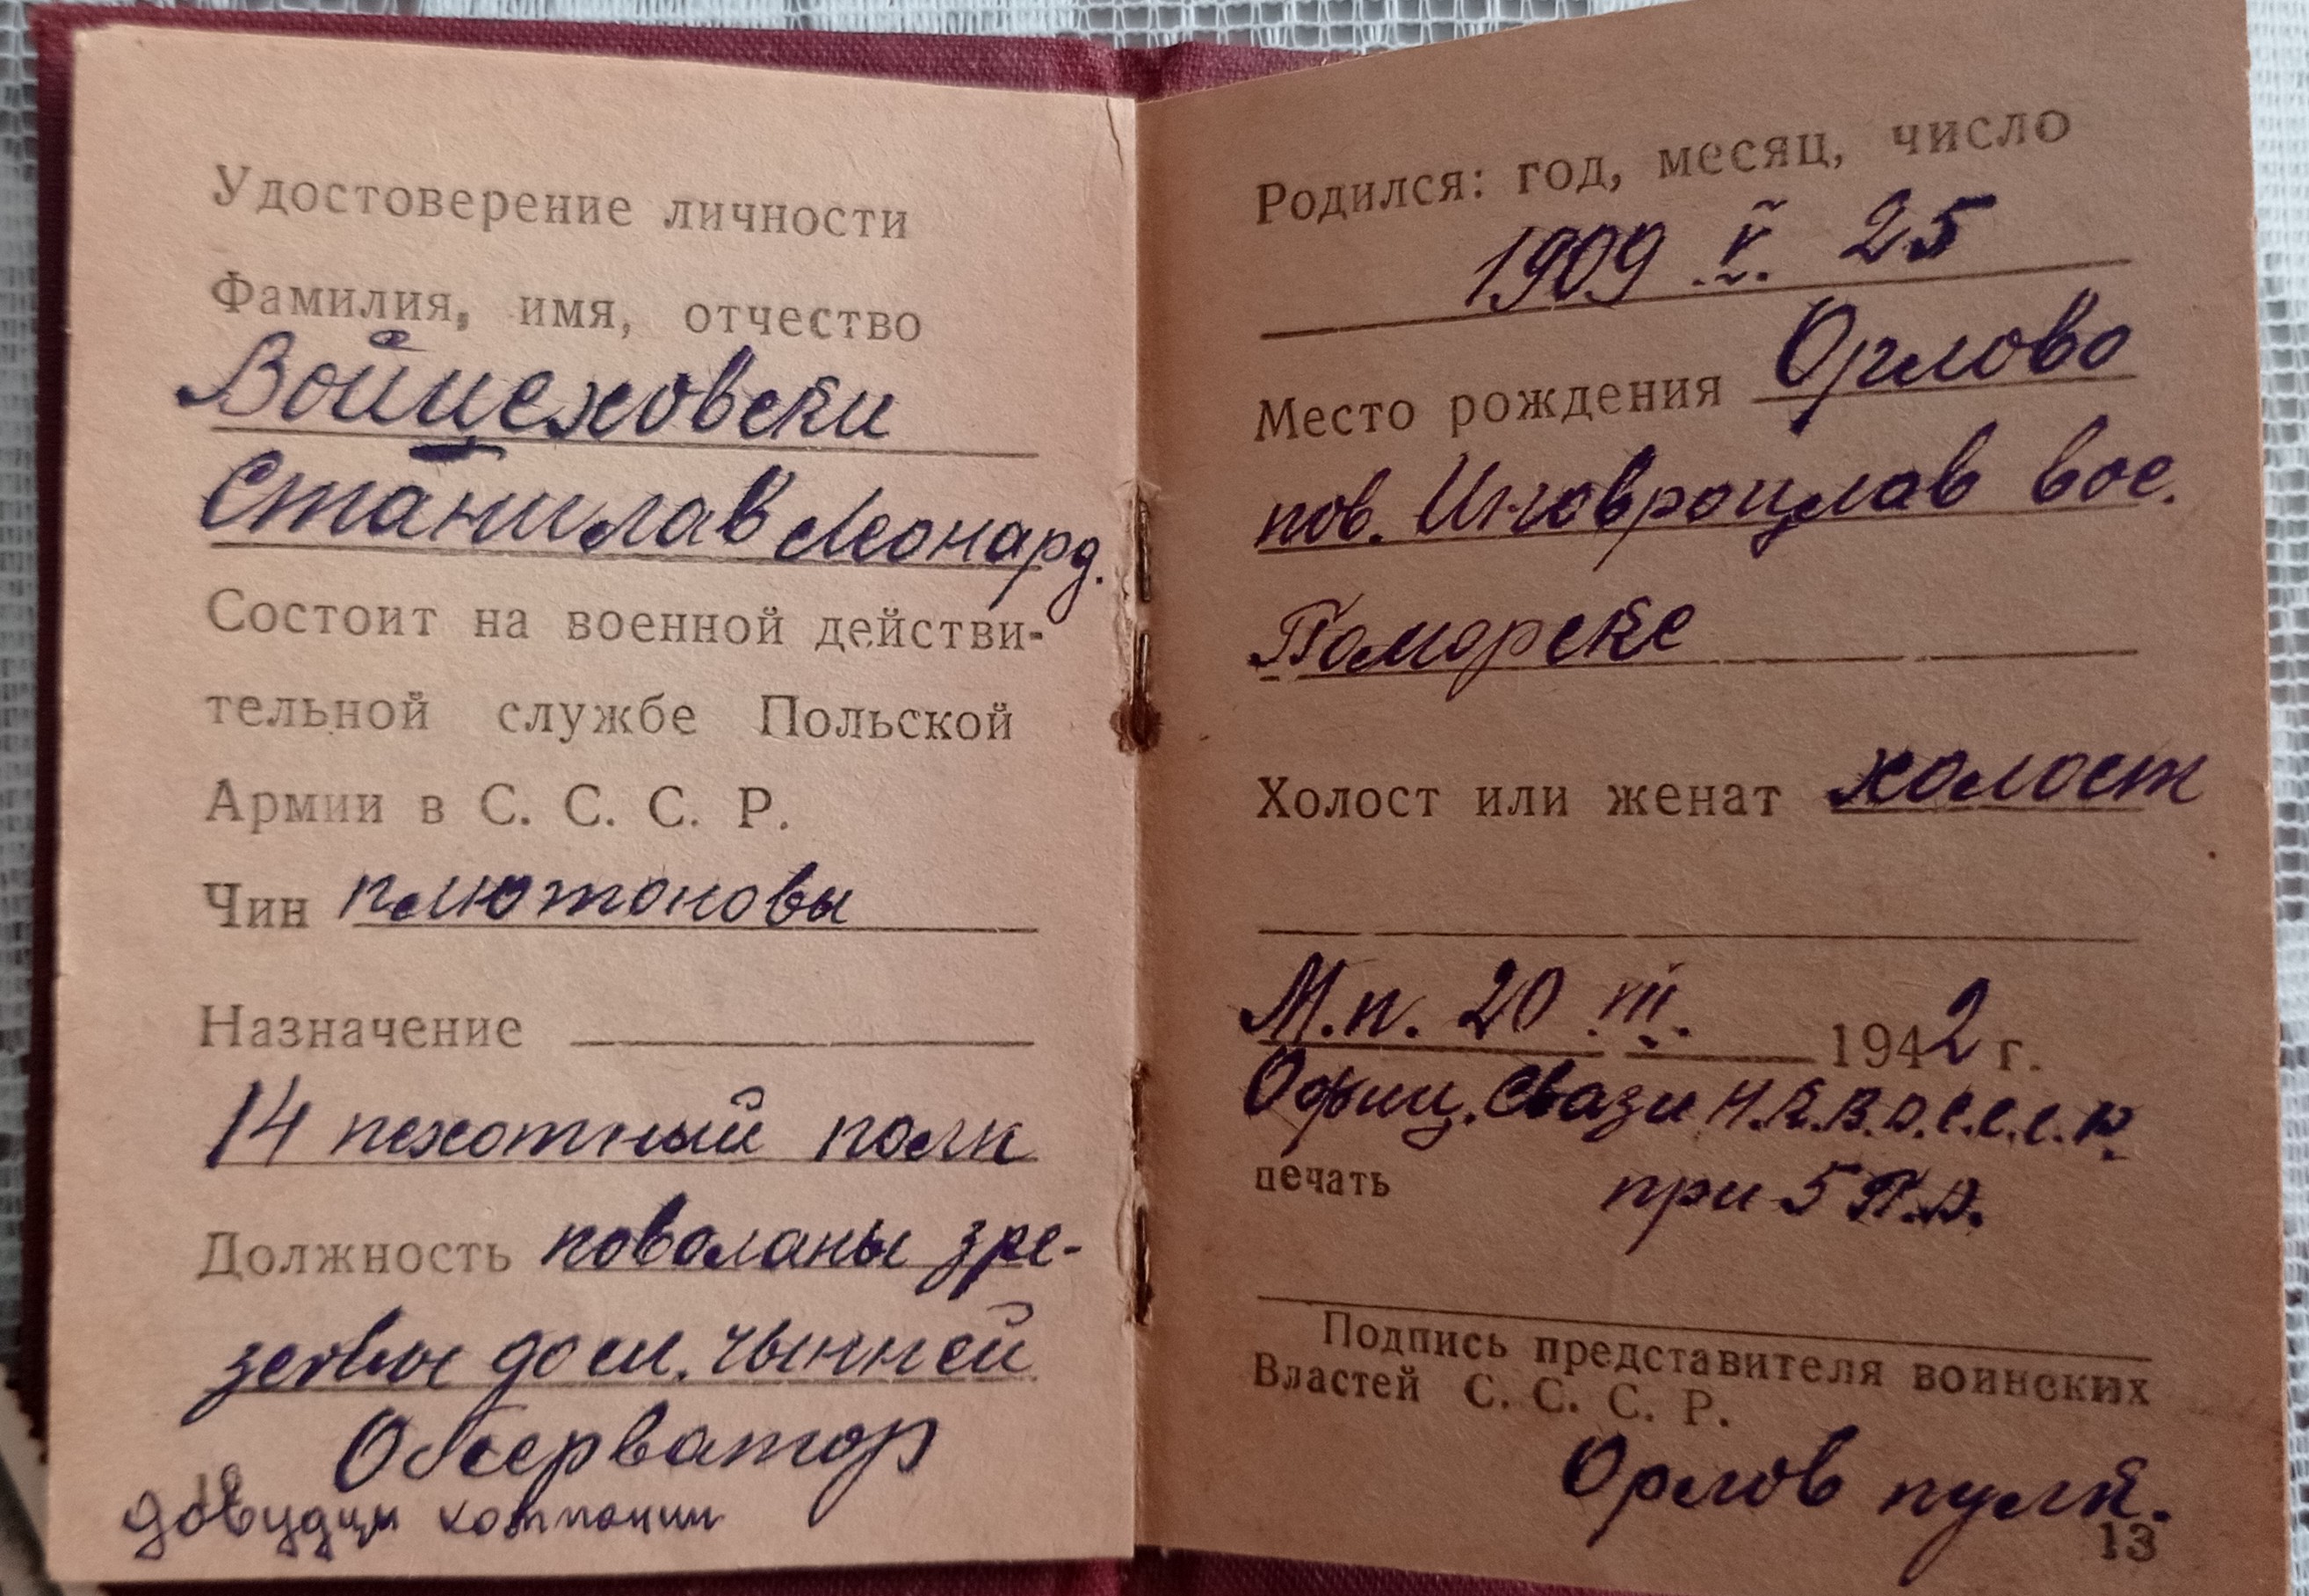 Удостоверение личности
Фамилия, имя, отчество
Войцеховски
Станилав Леонард.
Состоит на военной действи-
тельной службе Польской
Армии в С. С. С. Р.
Чин плютоновы
Назначение
14 пехотный полк
Должность поволаны зре-
зервы до сл. чынней
Обсерватор
довудцы компании
Родился: год, месяц, число
1909 V. 25
Место рождения Орлово
пов. Иновроцлав вое.
Поморске
Холост или женат холост
М.п. 20 III. 1942 г.
Офиц. Связи Н.К.В.Д.С.С.С.Р.
печать при 5 П.Д.
Подпись представителя воинских
Властей С. С. С. Р.
Орлов пулк.
13